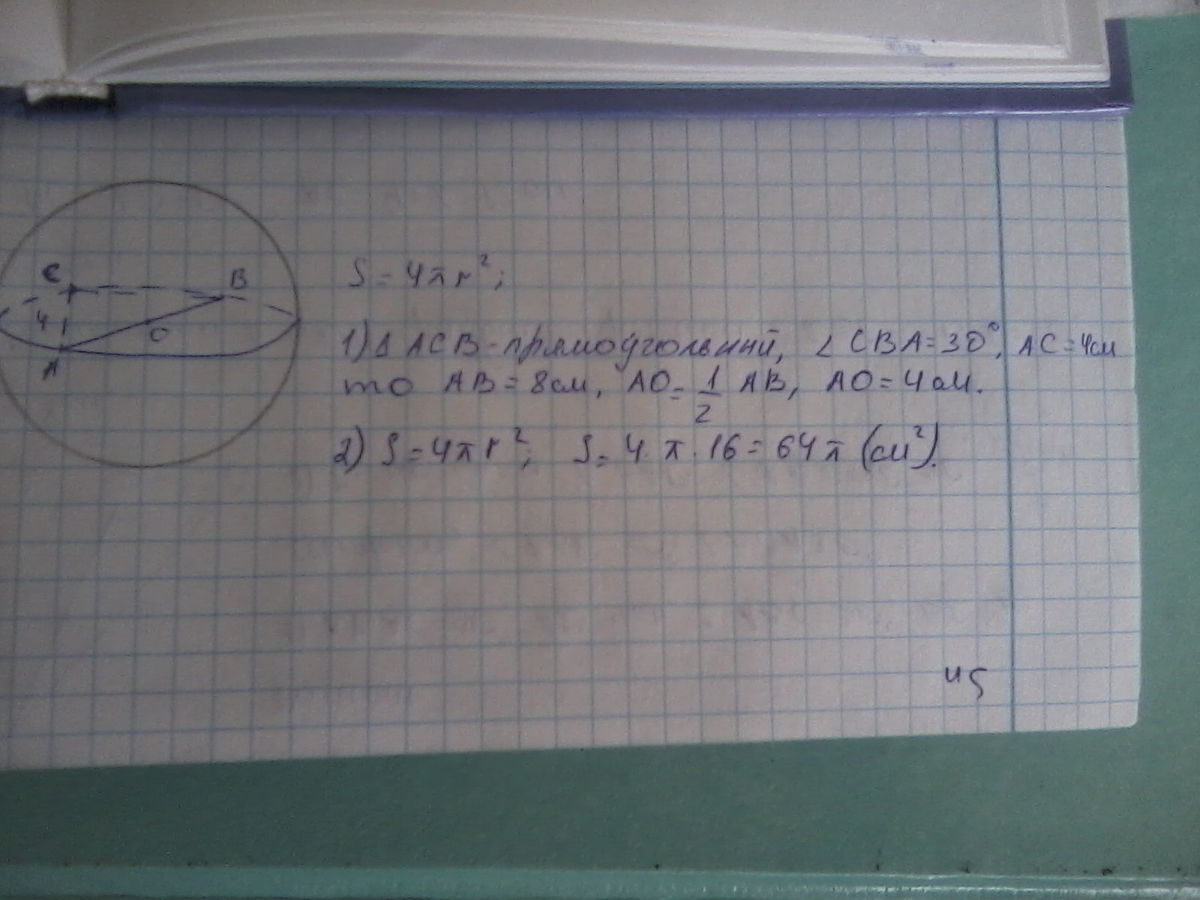 C
B
4
O
A
S = 4πr²;
1) Δ ACB - прямоугольный, ∠ CBA = 30°, AC = 4см
то AB = 8см, AO = 1/2 AB, AO = 4см.
2) S = 4πr²; S = 4·π·16 = 64π (см²).